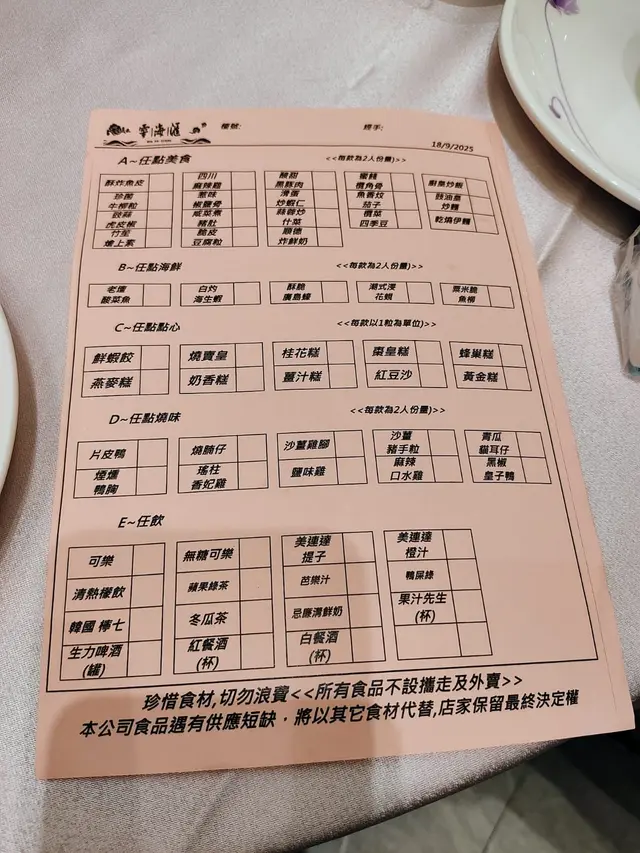 雲海滙 檯號: 經手:
18/9/2025
A~任點美食 <<每款為2人份量)>>
酥炸魚皮 四川麻辣雞 酸甜黑豚肉 蜜餞欖角骨 廚皇炒飯
珍菌牛柳粒 惹味椒鹽骨 滑蛋炒蝦仁 魚香炆茄子 豉油皇炒麵
豉蒜虎皮椒 咸菜煮豬肚 蒜蓉炒什菜 欖菜四季豆 乾燒伊麵
竹笙燴上素 脆皮豆腐粒 順德炸鮮奶
B~任點海鮮 <<每款為2人份量)>>
老壇酸菜魚 白灼海生蝦 酥脆廣島蠔 潮式浸花蜆 粟米脆魚柳
C~任點點心 <<每款以1粒為單位)>>
鮮蝦餃 燒賣皇 桂花糕 棗皇糕 蜂巢糕
燕麥糕 奶香糕 薑汁糕 紅豆沙 黃金糕
D~任點燒味 <<每款為2人份量)>>
片皮鴨 燒腩仔 沙薑雞腳 沙薑豬手粒 青瓜貓耳仔
煙燻鴨胸 瑤柱香妃雞 鹽味雞 麻辣口水雞 黑椒皇子鴨
E~任飲
可樂 無糖可樂 美連達提子 美連達橙汁
清熱檬飲 蘋果綠茶 芭樂汁 鴨屎綠
韓國 檸七 冬瓜茶 忌廉溝鮮奶 果汁先生(杯)
生力啤酒(罐) 紅餐酒(杯) 白餐酒(杯)
珍惜食材,切勿浪費<<所有食品不設攜走及外賣>>
本公司食品遇有供應短缺，將以其它食材代替,店家保留最終決定權